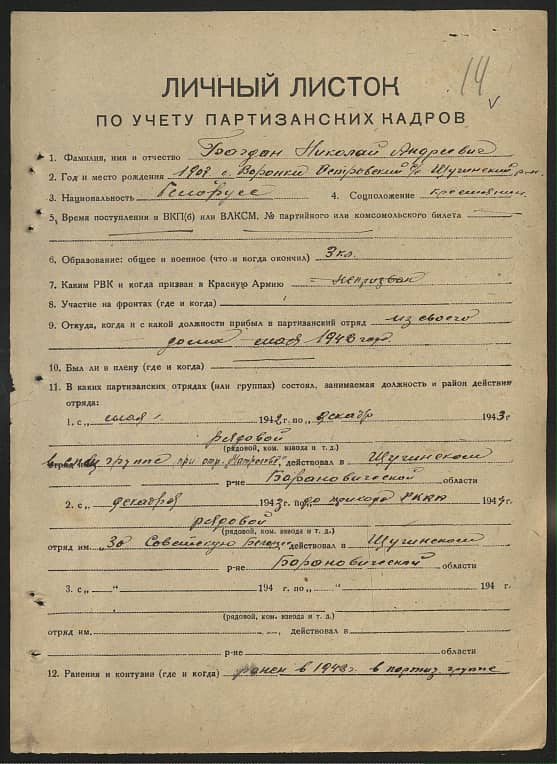 14
ЛИЧНЫЙ ЛИСТОК
ПО УЧЕТУ ПАРТИЗАНСКИХ КАДРОВ
1. Фамилия, имя и отчество Богдан Николай Андреевич
2. Год и место рождения 1909 с. Воронки Островский с/с Щучинский р-н.
3. Национальность Белорусс 4. Соцположение крестьянин
5. Время поступления в ВКП(б) или ВЛКСМ. № партийного или комсомольского билета
6. Образование: общее и военное (что и когда окончил) 3 кл.
7. Каким РВК и когда призван в Красную Армию непризван
8. Участие на фронтах (где и когда)
9. Откуда, когда и с какой должности прибыл в партизанский отряд из своего
дома мая 1943 года
10. Был ли в плену (где и когда)
11. В каких партизанских отрядах (или группах) состоял, занимаемая должность и район действия
отряда:
1. с „ мая 1942 г. по „ декабр 1943 г
рядовой
(рядовой, ком. взвода и т. д.)
в спец группе при отр. действовал в Щучинском
р-не Барановической области
2. с „ декабря 1943 г. по „ до прихода РККА 194 г.
рядовой
(рядовой, ком. взвода и т. д.)
отряд им. "За Советскую действовал в Щучинском
р-не Барановической области
3. с „ “ 194 г. по „ “ 194 г.
(рядовой, ком. взвода и т. д.)
отряд им. , действовал в
р-не области
12. Ранения и контузии (где и когда) ранен в 1943 г. в партиз. группе